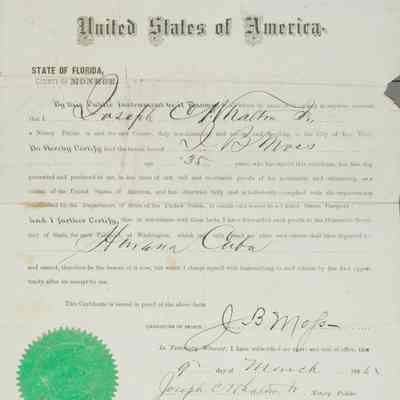 United States of America.
STATE OF FLORIDA,
COUNTY OF MONROE
By this Public Instrument be it known
that I Joseph C Whalton Jr.
a Notary Public in and for said County, duly commissioned and residing in the City of Key West
Do Hereby Certify that the bearer hereof J B Moss
age 35 years, who has signed this certificate, has this day
presented and produced to me, in due form of law, full and proofs of his nationality and citizenship, as a
citizen of the United States of America, and has otherwise fully and complied with the requirements
by the Department of State of the United States, to entitle said bearer to a United States Passport
And I further Certify, that in accordance with these facts, I have forwarded such proofs to the Honorable Secre-
tary of State, for said Passport, at Washington, which
Havana Cuba
and cannot, therefore be the bearer of it now, but which I charge myself with transmitting to said citizen by the first oppor-
tunity after its receipt to me.
This Certificate is issued in proof of the above facts
SIGNATURE OF BEARER J. B Moss
In Testimony Whereof, I have subscribed my name and seal of office, this
9th day of March
Joseph C Whalton Jr. Notary Public